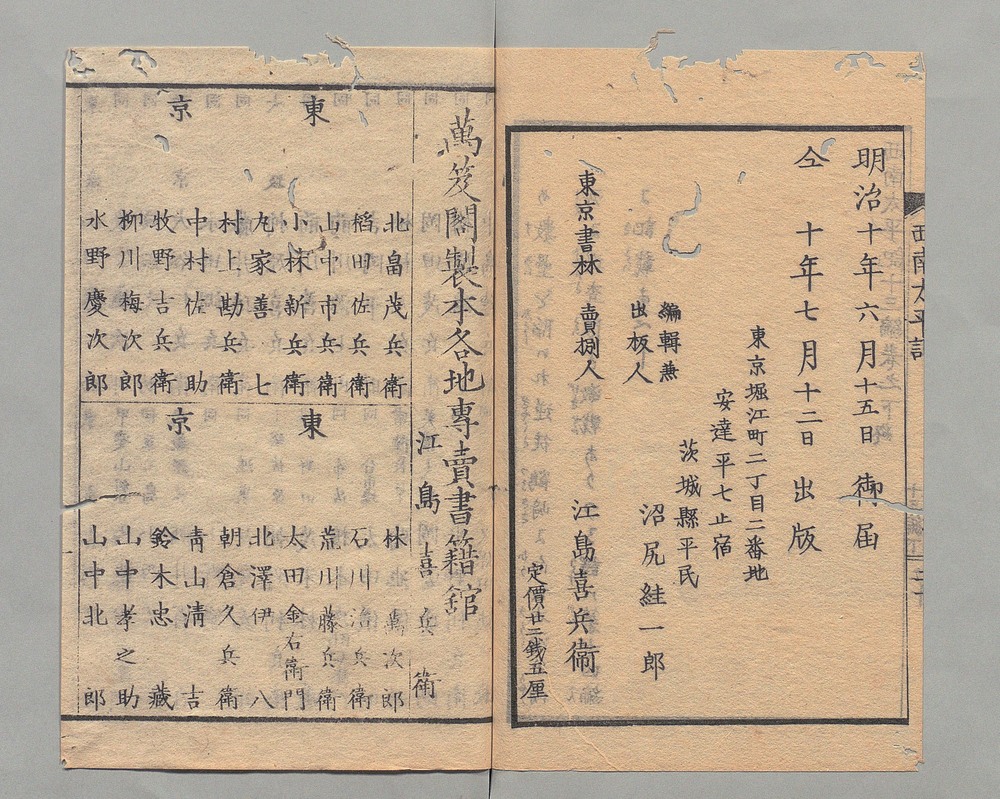 西南太平記
明治十年六月十五日 御届
仝 十年七月十二日 出版
東京堀江町二丁目二番地
安達平七止宿
茨城縣平民
編輯兼
出板人
沼尻絓一郎
東京書林 賣捌人 江島喜兵衞
定價廿二銭五厘
萬笈閣製本各地專賣書籍舘
江島喜兵衛
東京
北畠茂兵衛
稻田佐兵衛
山中市兵衛
小林新兵衛
丸家善七
村上勘兵衛
中村佐助
牧野吉兵衛
柳川梅次郎
水野慶次郎
東京
林萬次郎
石川治兵衛
荒川藤兵衛
太田金右衛門
北澤伊八
朝倉久兵衛
靑山淸吉
鈴木忠藏
山中孝之助
山中北郎